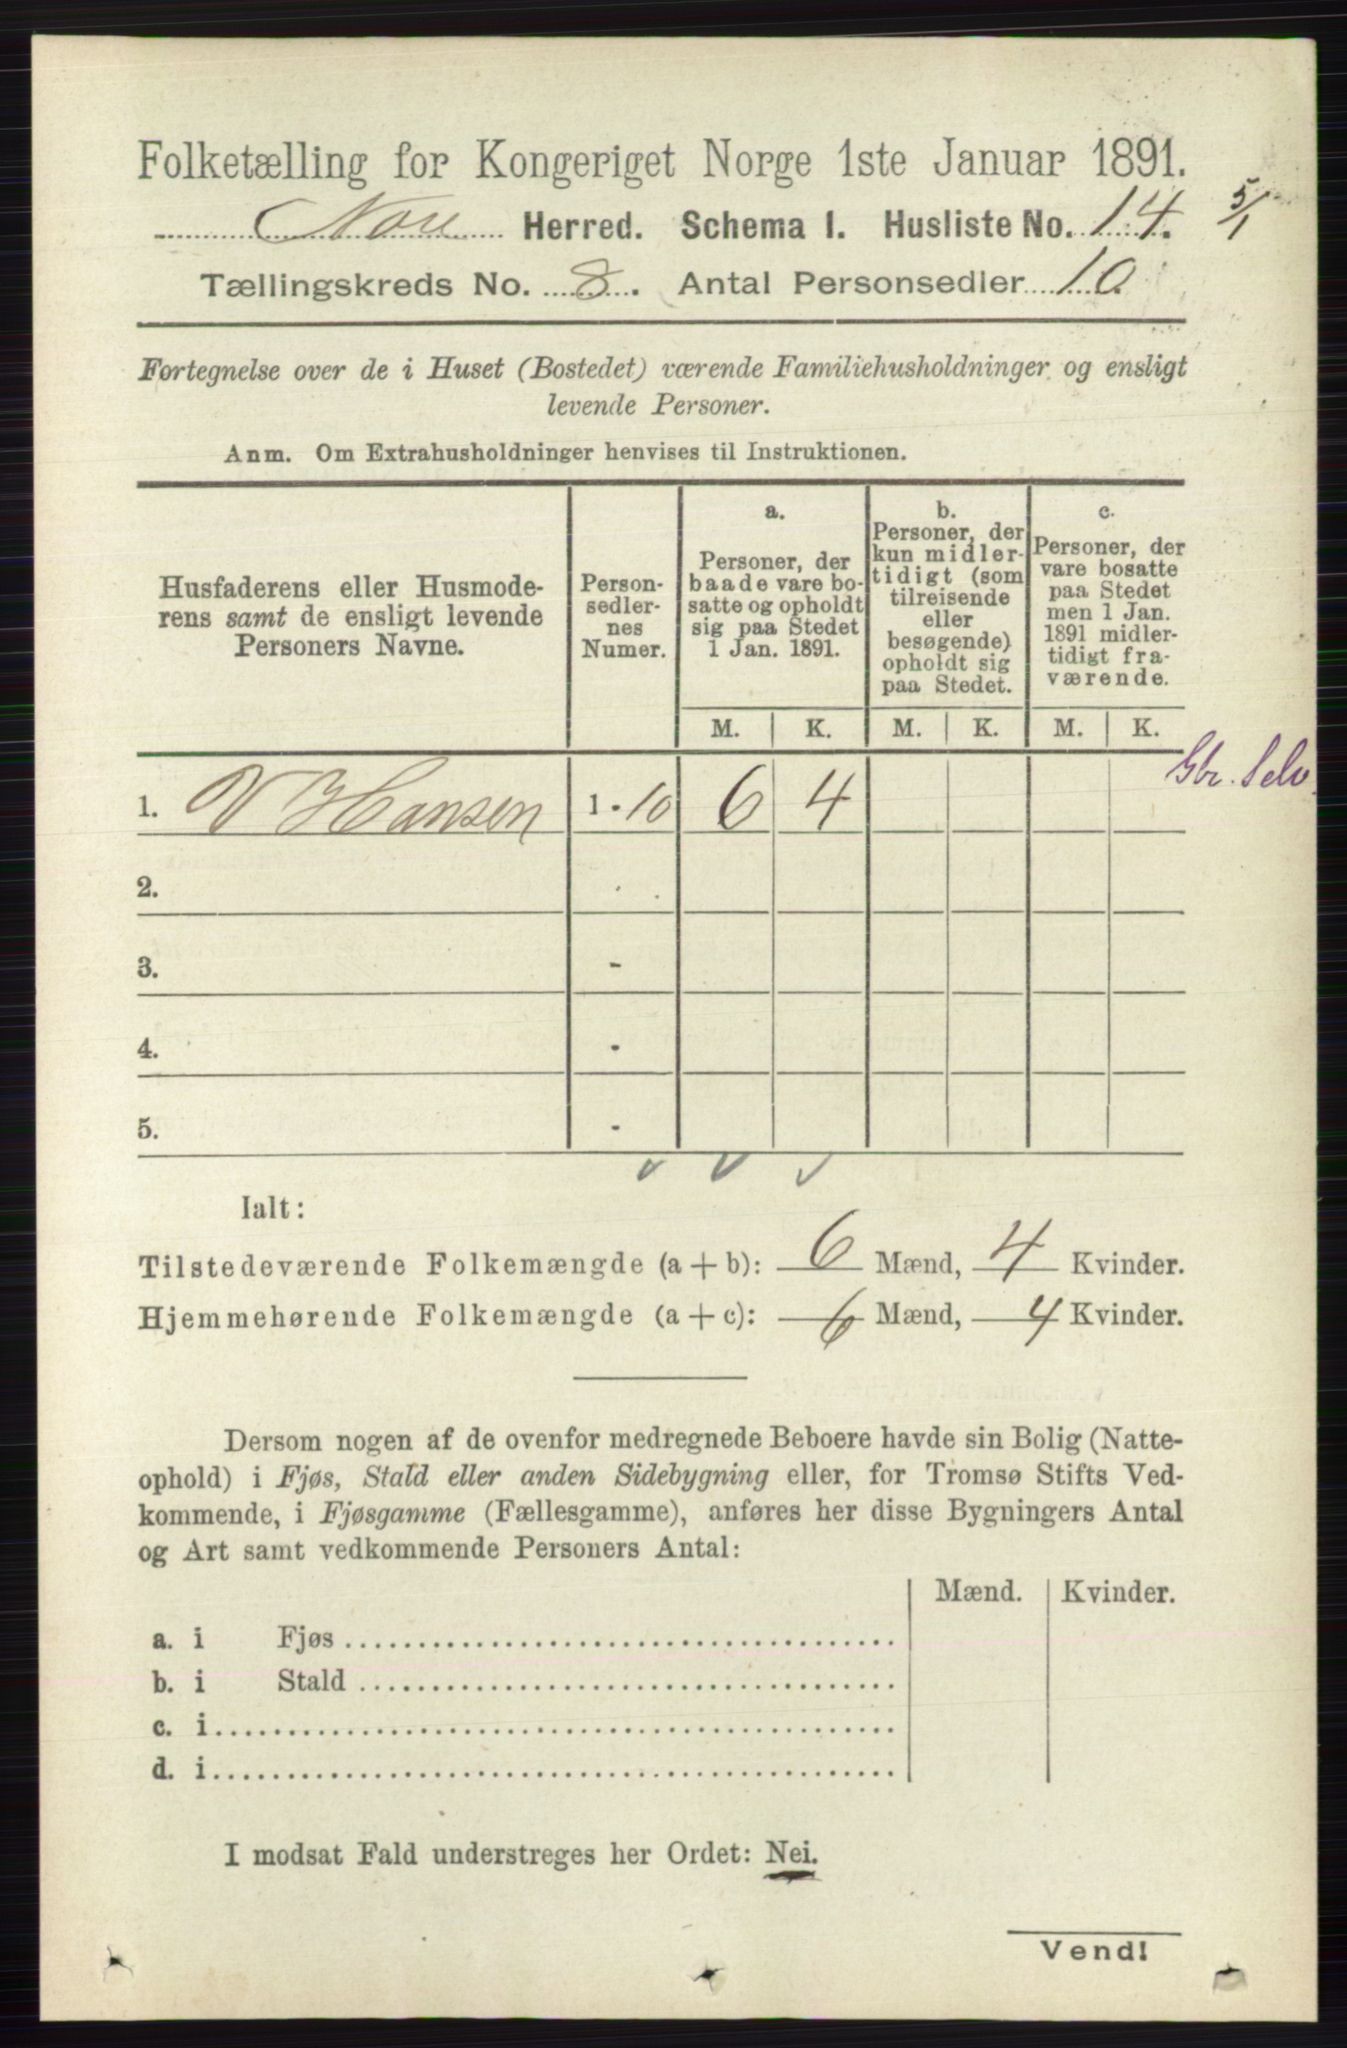 Folketælling for Kongeriget Norge 1ste Januar 1891.
Nore Herred. Schema I. Husliste No. 14. 5/1
Tællingskreds No. 8. Antal Personsedler 10.
Fortegnelse over de i Huset (Bostedet) værende Familiehusholdninger og ensligt
levende Personer.
Anm. Om Extrahusholdninger henvises til Instruktionen.
Husfaderens eller Husmode-
rens samt de ensligt levende
Personers Navne.
Person-
sedler-
nes
Numer.
a.
Personer, der
baade vare bo-
satte og opholdt
sig paa Stedet
1 Jan. 1891.
b.
Personer, der
kun midler-
tidigt (som
tilreisende
eller
besøgende)
opholdt sig
paa Stedet.
c.
Personer, der
vare bosatte
paa Stedet
men 1 Jan.
1891 midler-
tidigt fra-
værende.
M. K. M. K. M. K.
Gbr. Selv.
1. V Hansen 1 - 10 6 4
2. -
3. -
4. -
5. -
Ialt:
Tilstedeværende Folkemængde (a + b): 6 Mænd, 4 Kvinder.
Hjemmehørende Folkemængde (a + c): 6 Mænd, 4 Kvinder.
Dersom nogen af de ovenfor medregnede Beboere havde sin Bolig (Natte-
ophold) i Fjøs, Stald eller anden Sidebygning eller, for Tromsø Stifts Ved-
kommende, i Fjøsgamme (Fællesgamme), anføres her disse Bygningers Antal
og Art samt vedkommende Personers Antal:
Mænd. Kvinder.
a. i Fjøs
b. i Stald
c. i
d. i
I modsat Fald understreges her Ordet: Nei.
Vend!